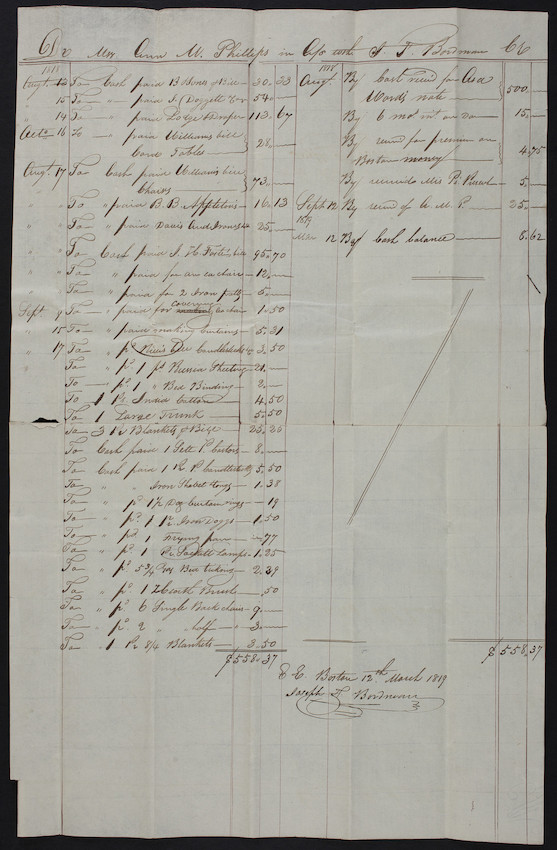 Dr Mrs Ann M. Phillips in A/c with J. T. Bordman Cr
1818
Augt. 13 To Cash paid B Bill 30.33
" 15 To " paid J Doggett & Co 54
" 14 To " paid Lodge & Draper 113.67
16 To paid Williams bill Card Tables 28.
Augt. 17 To Cash paid Williams bill Chairs 73.
" " To " paid B B Appletons 16.13
" " To " paid Davis 25.
" " To Cash paid J. H. Fosters bill 95.70
" " To " paid for an ea chair 12.
" " To " paid for 2 Iron potts 5.
Sept 8 To " paid for covering ea chair 1.50
" 15 To " paid making curtains 5.31
" 17 To " pd. Candlesticks &c 3.50
" To " pd. 1 ps Russia Sheeting 21.
To " pd. 1 " Bed Binding 2.
To 1 Ps India Cotton 4.50
To 1 Large Trunk 5.50
To 3 Pr Blankets & Bill 25.26
To Cash paid 1 Sett P. Castors 8.
To Cash paid 1 Pr P. Candlesticks 5.50
To " " Iron Shovel tongs 1.38
To " pd 1½ Doz Curtain rings 19
To " pd. 1 Pr. Iron Doggs 1.50
To " pd. 1 Frying pan .77
To " pd. 1 Pr. Sockett Lamps 1.25
To " pd. 5¾ yds Bed ticking 2.39
To " pd. 1 Hearth Brush .50
To " pd. 6 Single Back chairs 9.
To " pd 2 " half " 3.
To " 1 Pr 8/4 Blankets 3.50
$558.37
1818
Augt. By Cash recd for Words note 500.
By 6 mos int on do 15.
By recd for premium on Boston money 4.75
By received Mrs P. 5.
Sept 12 By recd of A. M. P. 25.
1819
Mar 12 By Cash balance 8.62
$558.37
E E Boston 12th March 1819
Joseph T Bordman